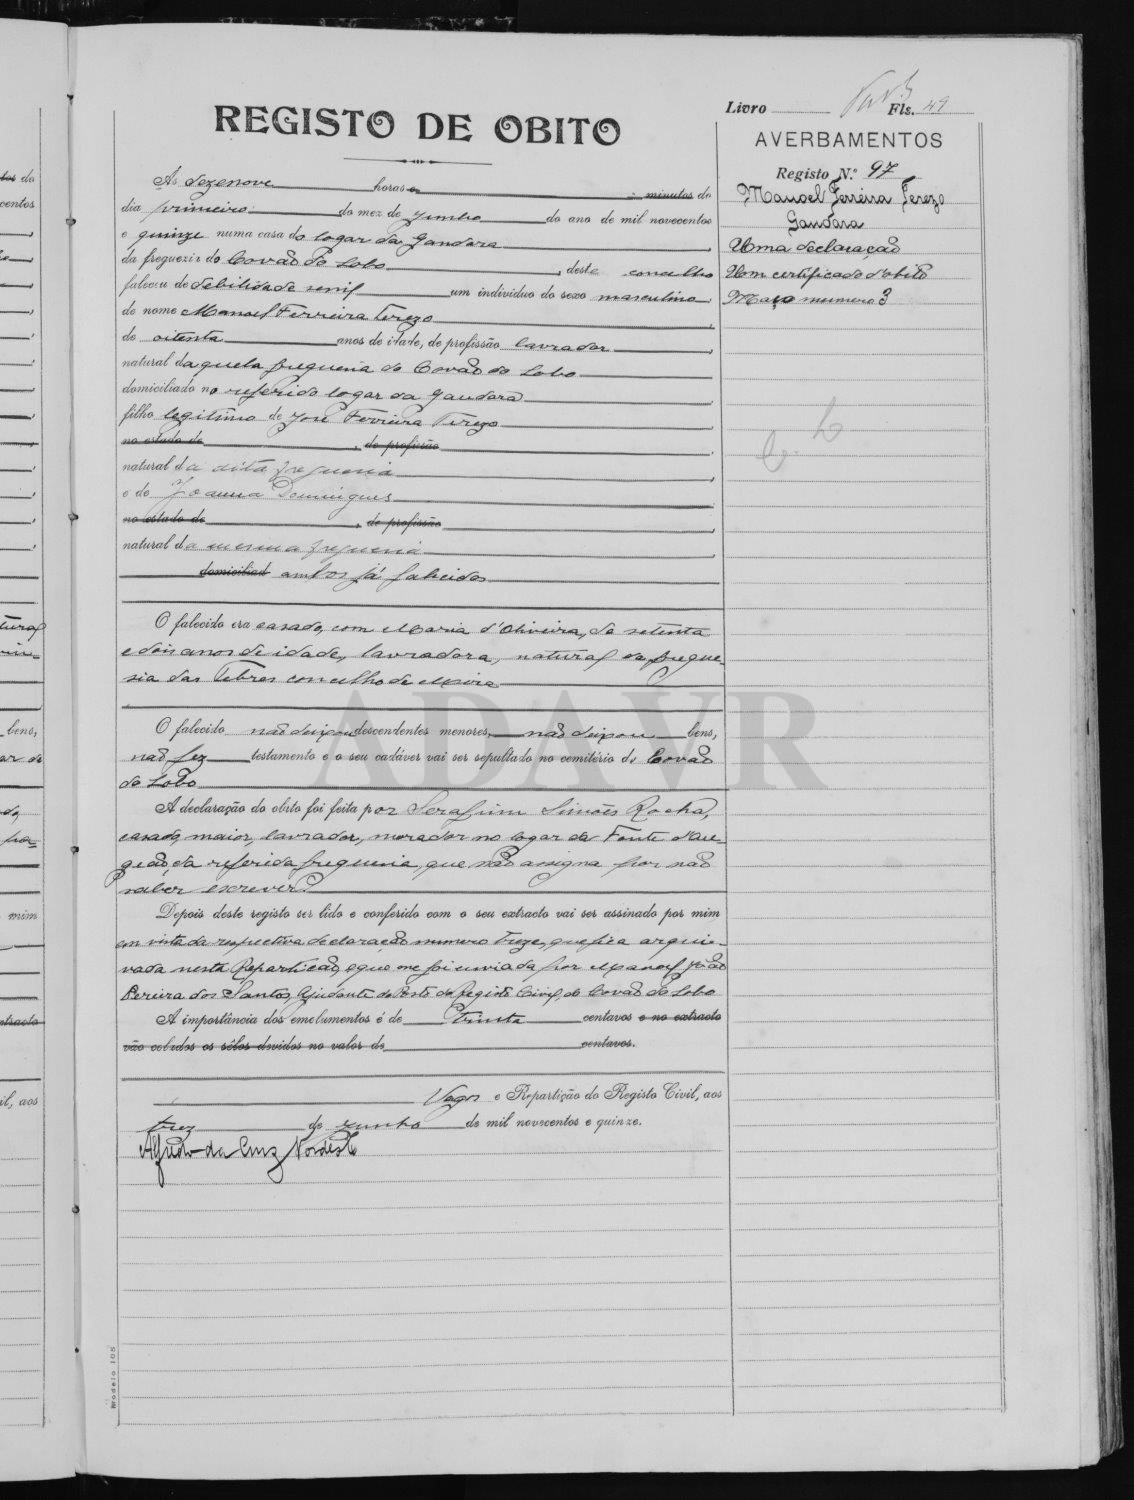 Livro Fls. 49
REGISTO DE OBITO
AVERBAMENTOS
Registo N.º 97
Manoel Ferreira Terezo
Gandara
Uma declaração
Um certificado d'obito
Maço numero 3
Ás dezenove horas e minutos do
dia primeiro do mez de Junho do ano de mil novecentos
e quinze numa casa do logar da Gandara
da freguezia do Covão do Lobo, deste concelho
faleceu de debilidade senil um individuo do sexo masculino
de nome Manoel Ferreira Terezo
de oitenta anos de idade, de profissão lavrador
natural daquela freguesia do Covão do Lobo
domiciliado no referido logar da Gandara
filho legitimo de José Ferreira Terezo
no estado de, de profissão
natural da dita freguesia
e de Joanna Domingues
no estado de, de profissão
natural da mesma freguesia
domiciliad ambos já falecidos
O falecido era casado, com Maria d'Oliveira, de setenta
e dois anos de idade, lavradora, natural da fregue-
sia das Febres concelho de Mira
O falecido não deixou descendentes menores, não deixou bens,
não fez testamento e o seu cadáver vai ser sepultado no cemitério do Covão
do Lobo
A declaração do obito foi feita por Serafim Simões Rocha,
casado, maior, lavrador, morador no logar da Fonte
da referida freguesia, que não assigna por não
saber escrever.
Depois deste registo ser lido e conferido com o seu extracto vai ser assinado por mim
em vista da respectiva declaração numero treze, que fica arqui-
vada nesta Repartição, e que me foi enviada por Manoel João
Pereira dos Santos, Ajudante do Posto do Registo Civil do Covão do Lobo
A importância dos emolumentos é de trinta centavos e no extracto
vão colados os sêlos devidos no valor de centavos.
Vagos e Repartição do Registo Civil, aos
trez de Junho de mil novecentos e quinze.
Alfredo da Cruz Nordeste
Modelo 105
ADAVR